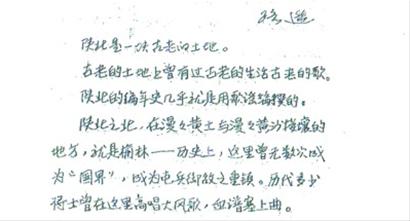 路遥
陕北是一块古老的土地。
古老的土地上曾有过古老的生活古老的歌。
陕北的编年史几乎就是用歌谣编撰的。
陕北之北，在漫々黄土与漫々黄沙接壤的
地方，就是榆林——历史上，这里曾无数次成
为“国界”，成为屯兵御敌之重镇。历代多少
将士曾在这里高唱大风歌，血谱塞上曲。